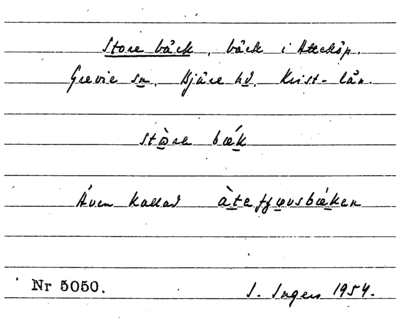 Store bäck, bäck i Atteköp.
Grevie sn. Bjäre hd. Krist- län.
stòre bæ̀k
Även kallad àtetjøusbæken
Nr 5050. I. Ingers 1954.